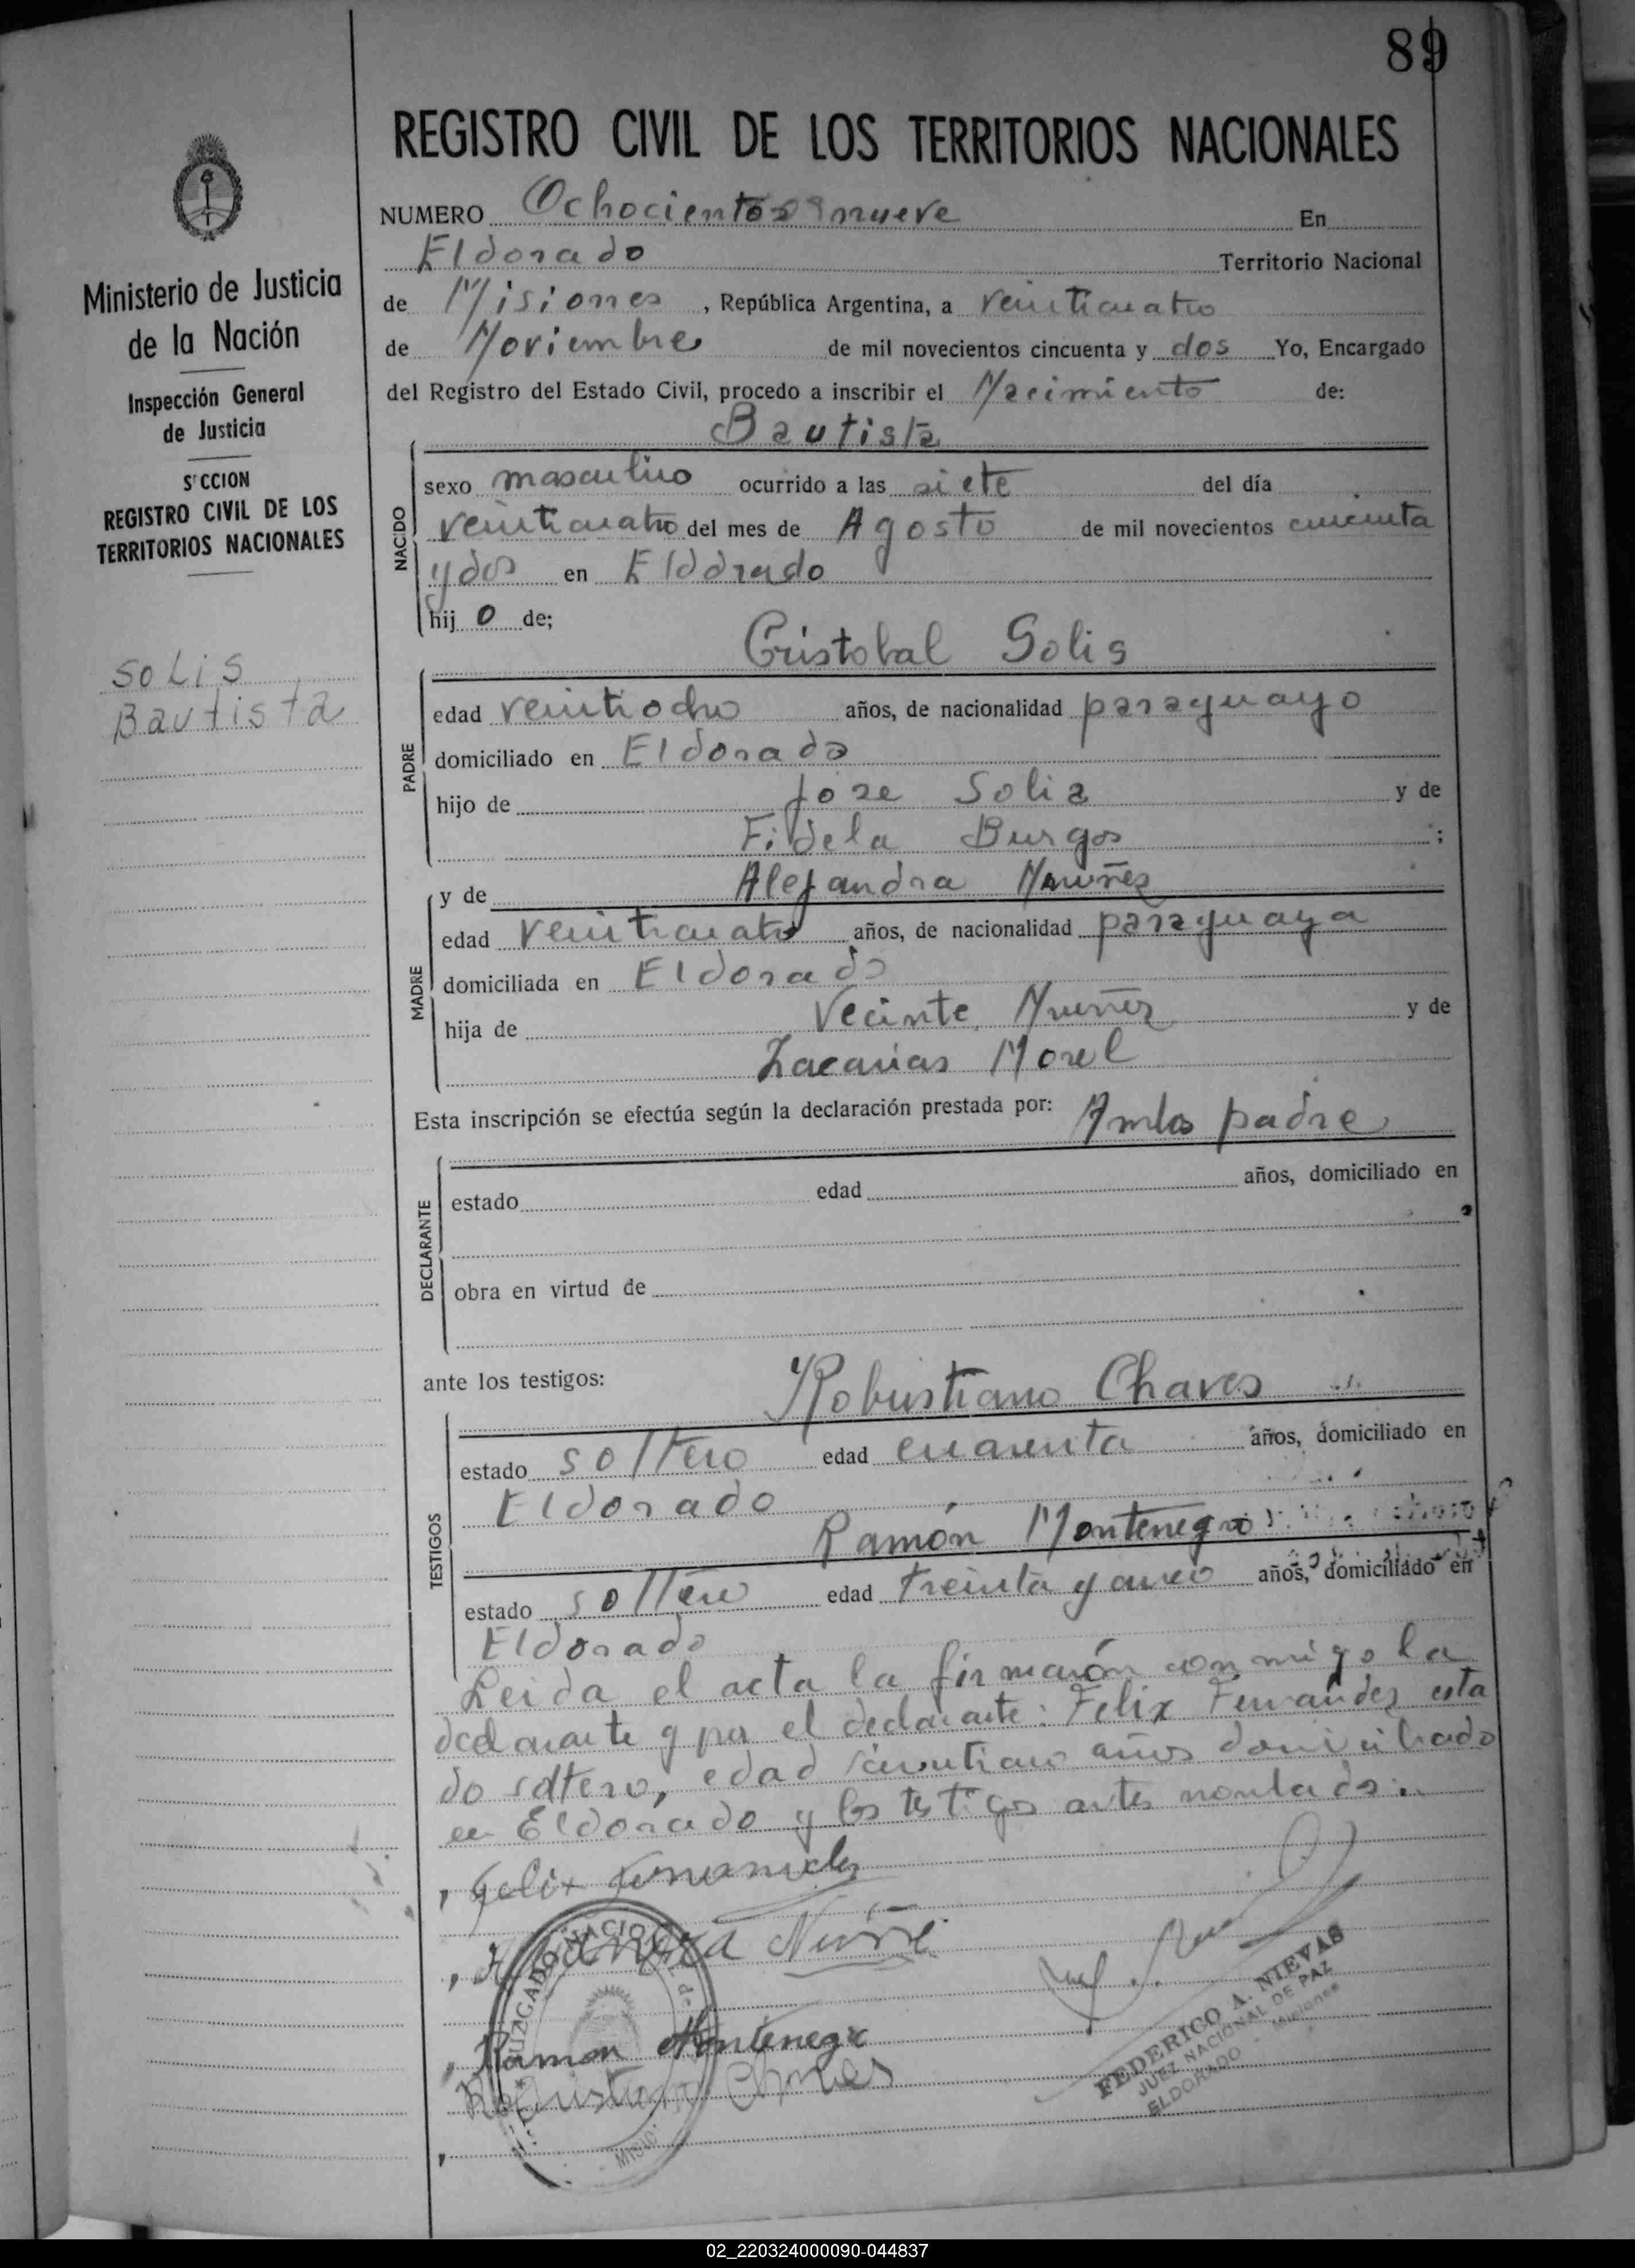 89
REGISTRO CIVIL DE LOS TERRITORIOS NACIONALES
NUMERO Ochocientos nueve En
Eldorado Territorio Nacional
de Misiones, República Argentina, a veinticuatro
de Noviembre de mil novecientos cincuenta y dos Yo, Encargado
del Registro del Estado Civil, procedo a inscribir el Nacimiento de:
Bautista
NACIDO
sexo masculino ocurrido a las siete del día
veinticuatro del mes de Agosto de mil novecientos cincuenta
y dos en Eldorado
hijo de;
Cristobal Solis
PADRE
edad veintiocho años, de nacionalidad paraguayo
domiciliado en Eldorado
hijo de Jose Solis y de
Fidela Burgos ;
y de Alejandra Nuñez
MADRE
edad veinticuatro años, de nacionalidad paraguaya
domiciliada en Eldorado
hija de Vecinte Nuñez y de
Zacarias Morel
Esta inscripción se efectúa según la declaración prestada por: Ambos padre
DECLARANTE
estado edad años, domiciliado en
obra en virtud de
ante los testigos:
Robustiano Chaves
TESTIGOS
estado soltero edad cuarenta años, domiciliado en
Eldorado
Ramón Montenegro
estado soltero edad treinta y cinco años, domiciliado en
Eldorado
Leida el acta la firmarón conmigo la
declarante y por el declarante: Felix Fernandez esta
do soltero, edad años domiciliado
en Eldorado y los testigos antes
Felix Fernandez
Nuñe
Ramon Montenegro
Robustiano Chaves
JUZGADO NACIONAL de
MISIO
FEDERICO A. NIEVAS
JUEZ NACIONAL DE PAZ
ELDORADO Misiones
Ministerio de Justicia
de la Nación
Inspección General
de Justicia
S'CCION
REGISTRO CIVIL DE LOS
TERRITORIOS NACIONALES
SOLIS
Bautista
02_220324000090-044837